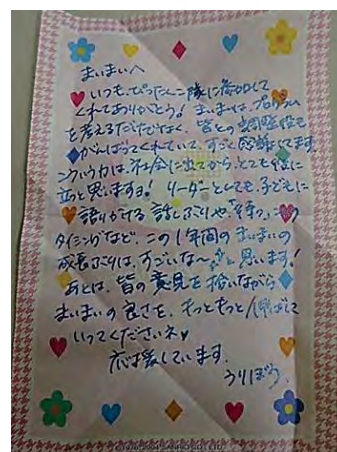 まいまいへ
いつも、ぴったんこ隊に参加して
くれてありがとう! まいまいは、プログラム
を考えるだけでなく、皆との調整役も
がんばってくれていて、すごく感謝してます。
ンクウカは、社会に出てから、とても役に
立つと思いますョ! リーダーとしても、子どもに
語りかける 話しぶりや、「待つ」
タイミングなど、この1年間のまいまいの
成長ぶりは、すごいな〜 と思います!
あとは、皆の意見を拾いながら
まいまいの良さを、もっともっと伸ばして
いってくださいネ♥
応援しています。
うりぼう.